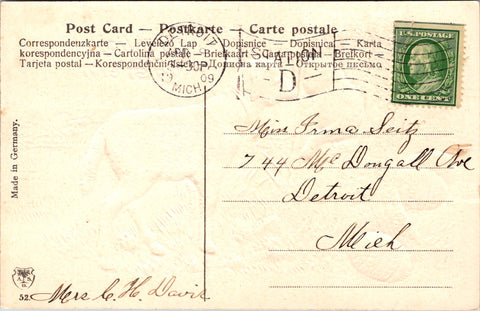 Post Card – Postkarte – Carte postale
Correspondenzkarte – Levelező Lap – Dopisnice – Dopisnica – Karta
korespondencyjna – Cartolina postale – Briefkaart – Cartão postal – Brefkort –
Tarjeta postal – Korespondenční lístek – Дописна карта – Открытое письмо
DETROIT
5-30P
09
MICH.
STATION
D
U.S. POSTAGE
ONE CENT
Miss Irma Seitz
744 McDougall Ave
Detroit
Mich
Made in Germany.
52.
Mrs C. H. Davis